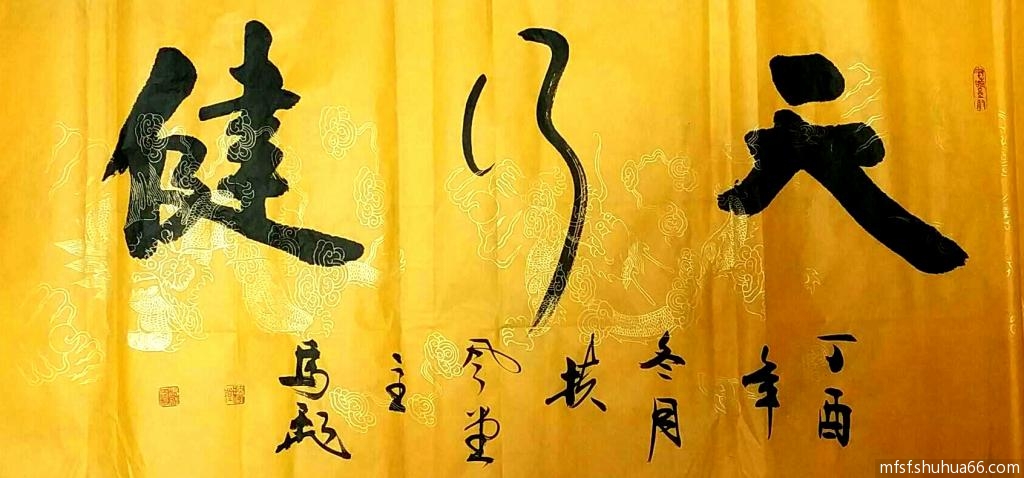 天行健
丁酉
年
冬月
风堂
主
马
mfsf.shuhua66.com